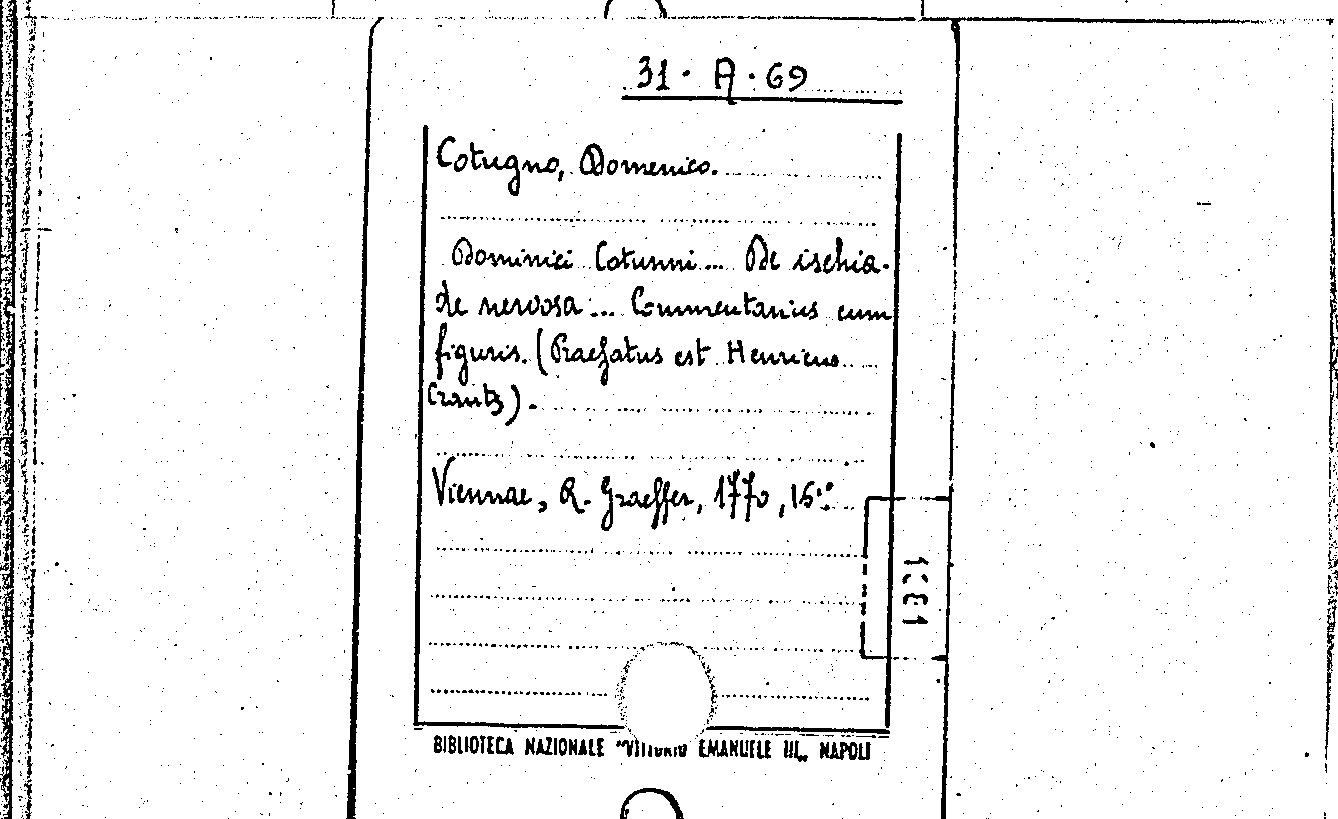 31 · A · 69
Cotugno, Domenico.
Dominici Cotunni ... De ischia-
de nervosa ... Commentarius cum
figuris. (Praefatus est Henricus
Crantz).
Viennae, R. Graeffer, 1770, 16°.
1081
BIBLIOTECA NAZIONALE "VITTORIO EMANUELE III„ NAPOLI